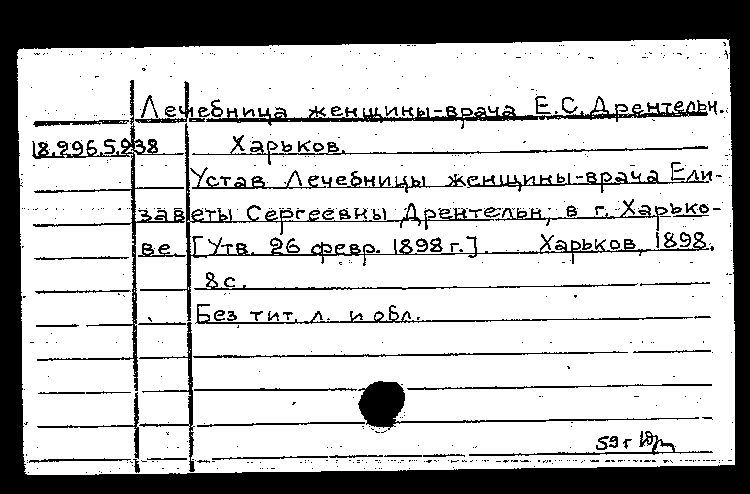 Лечебница женщины-врача Е.С. Дрентельн.
18.296.5.238 Харьков.
Устав Лечебницы женщины-врача Ели-
заветы Сергеевны Дрентельн, в г. Харько-
ве. [Утв. 26 февр. 1898 г.]. Харьков, 1898.
8 с.
Без тит. л. и обл.
59 г